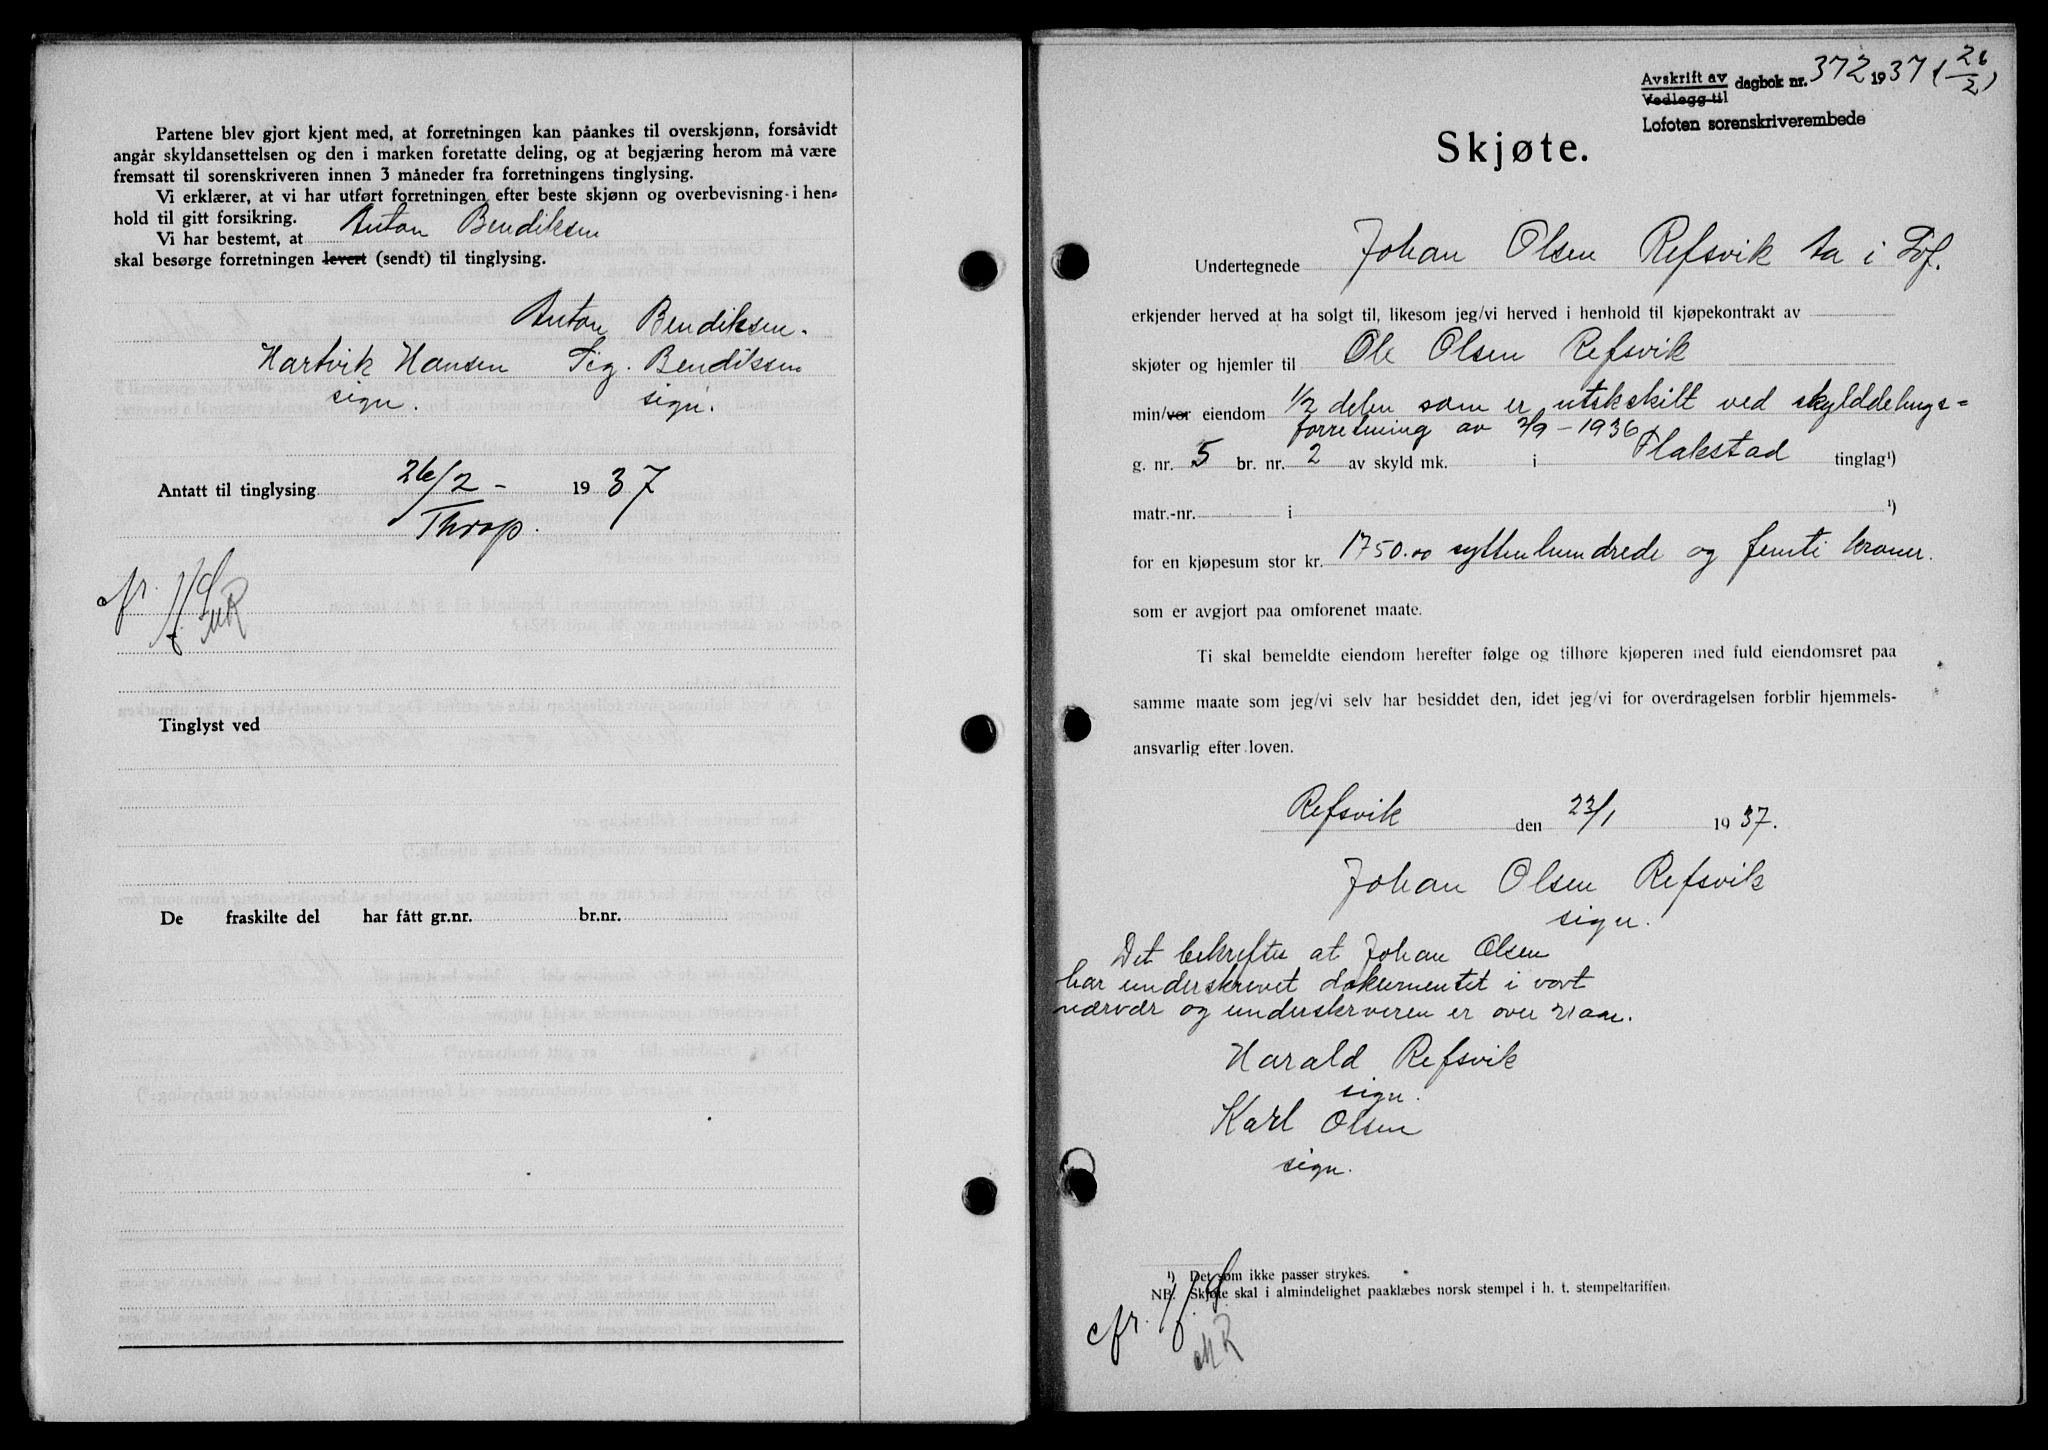 Partene blev gjort kjent med, at forretningen kan påankes til overskjønn, forsåvidt
angår skyldansettelsen og den i marken foretatte deling, og at begjæring herom må være
fremsatt til sorenskriveren innen 3 måneder fra forretningens tinglysing.
Vi erklærer, at vi har utført forretningen efter beste skjønn og overbevisning i hen-
hold til gitt forsikring.
Vi har bestemt, at Anton Bendiksen
skal besørge forretningen levert (sendt) til tinglysing.
Anton Bendiksen.
Hartvik Hansen Sig. Bendiksen
sign. sign.
Antatt til tinglysing 26/2 - 1937
Throp.
cfr.
MR
Tinglyst ved
De fraskilte del har fått gr.nr. br.nr.
Avskrift av dagbok nr. 372 1937 (26/2)
Vedlegg til
Lofoten sorenskriverembede
Skjøte.
Undertegnede Johan Olsen Refsvik Aa i Lof.
erkjender herved at ha solgt til, likesom jeg/vi herved i henhold til kjøpekontrakt av
skjøter og hjemler til Ole Olsen Refsvik
min/vor eiendom 1/2 delen som er utskskilt ved skylddelings=
forretning av 2/9 - 1936
g. nr. 5 br. nr. 2 av skyld mk. i Flakstad tinglag¹)
matr.-nr. i ¹)
for en kjøpesum stor kr. 1750.00 syttenhundrede og femti kroner.
som er avgjort paa omforenet maate.
Ti skal bemeldte eiendom herefter følge og tilhøre kjøperen med fuld eiendomsret paa
samme maate som jeg/vi selv har besiddet den, idet jeg/vi for overdragelsen forblir hjemmels-
ansvarlig efter loven.
Refsvik den 23/1 1937.
Johan Olsen Refsvik
sign.
Det bekreftes at Johan Olsen
har underskrevet dokumentet i vort
nærvær og underskriveren er over 21 aar.
Harald Refsvik
sign.
Karl Olsen
sign.
¹) Det som ikke passer strykes.
NB. Skjøte skal i almindelighet paaklæbes norsk stempel i h. t. stempeltariffen.
cfr.
MR